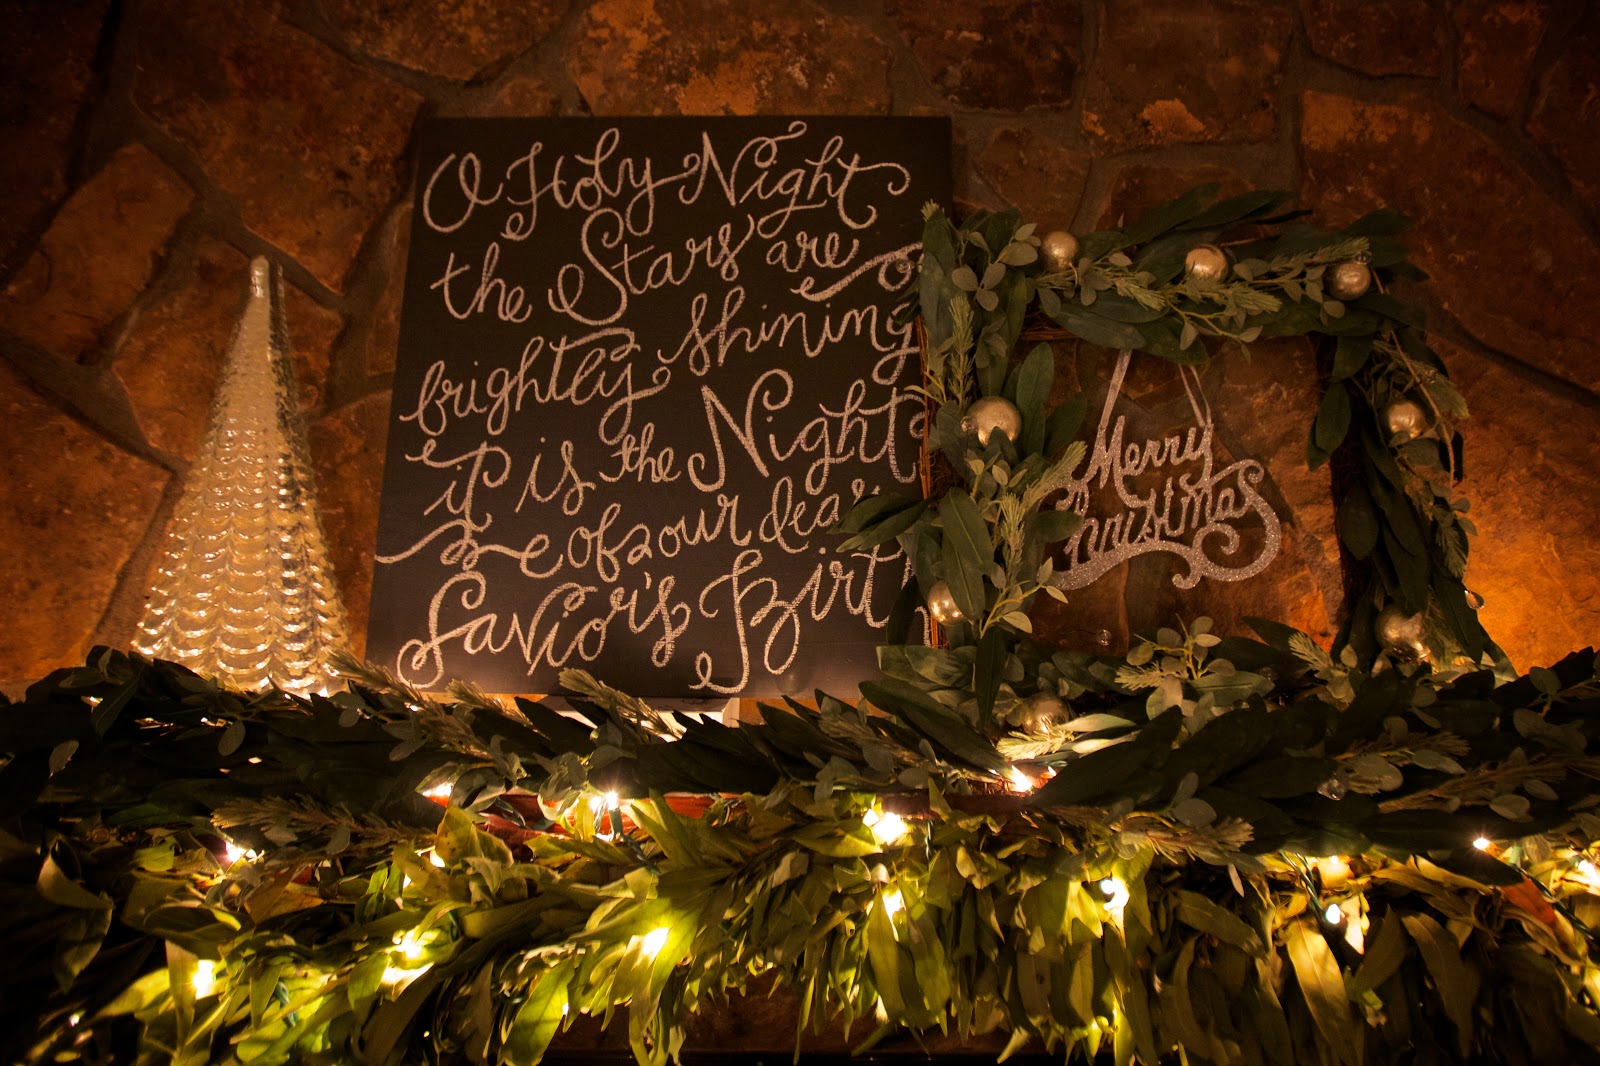 O Holy Night
the Stars are
brightly shining
it is the Night
of our dear
Savior's Birth
Merry
Christmas